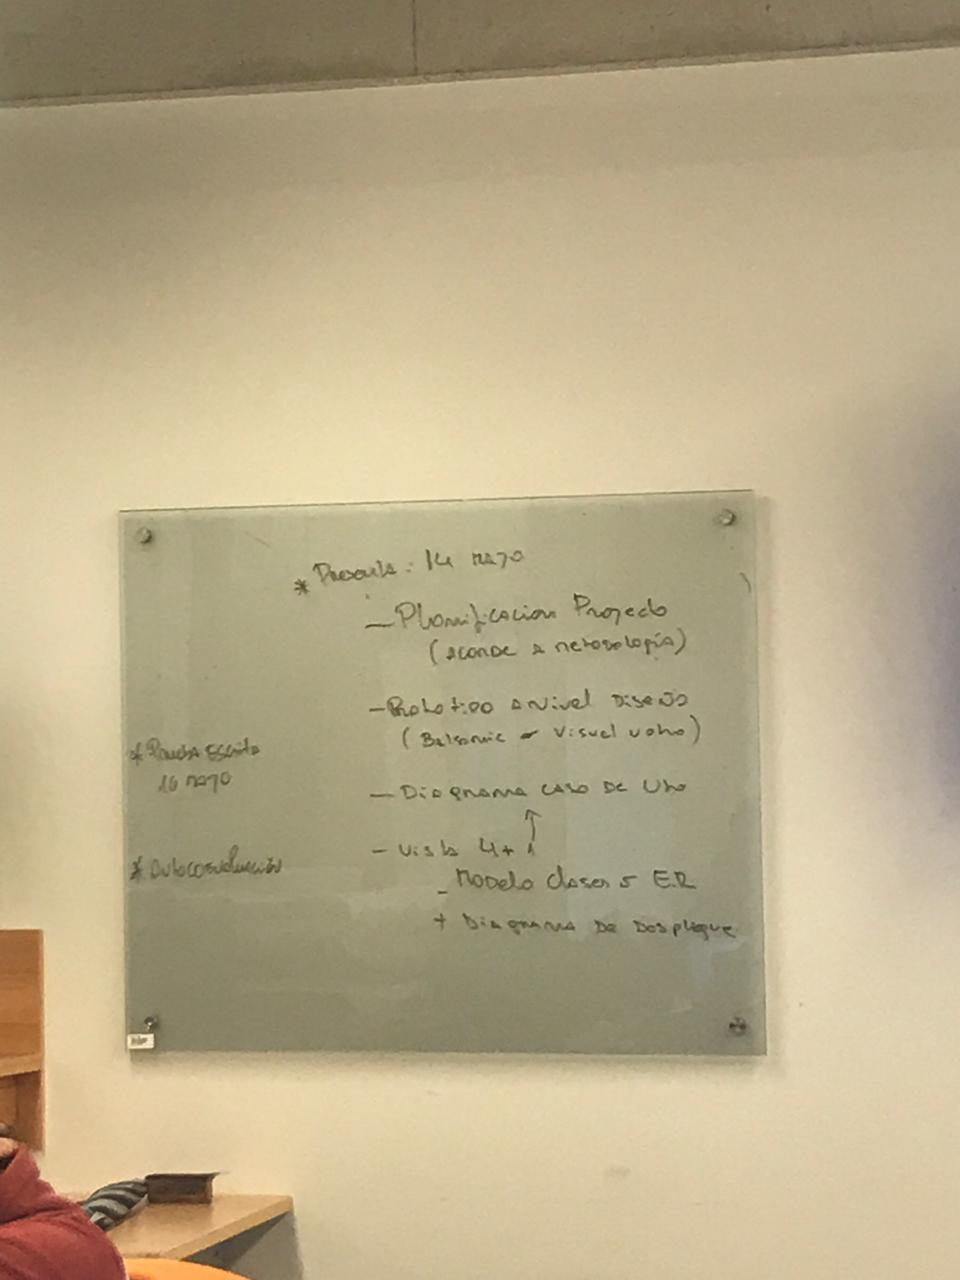 * Presenta: 14 Mayo
— Planificacion Proyecto
(acorde a metodología)
— Prototipo a nivel Diseño
(Balsamic o Visual
— Diagrama caso de Uso
— Vista 4+1
- Modelo clases E.R
+ Diagrama de Despliegue
* Prueba Escrita
16 Mayo
* Autocoevaluación